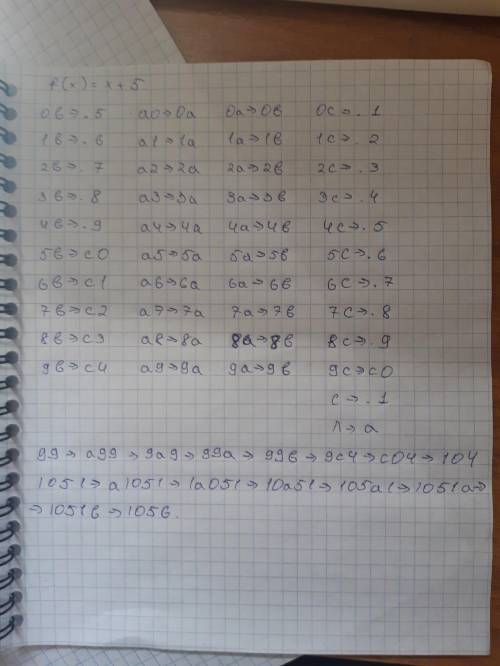 f(x) = x + 5
0в→.5 a0→0a 0a→0в 0c→.1
1в→.6 a1→1a 1a→1в 1c→.2
2в→.7 a2→2a 2a→2в 2c→.3
3в→.8 a3→3a 3a→3в 3c→.4
4в→.9 a4→4a 4a→4в 4c→.5
5в→c0 a5→5a 5a→5в 5c→.6
6в→c1 a6→6a 6a→6в 6c→.7
7в→c2 a7→7a 7a→7в 7c→.8
8в→c3 a8→8a 8a→8в 8c→.9
9в→c4 a9→9a 9a→9в 9c→c0
c→.1
Λ→a
99→a99→9a9→99a→99в→9c4→c04→104
1051→a1051→1a051→10a51→105a1→1051a→
→1051в→1056.